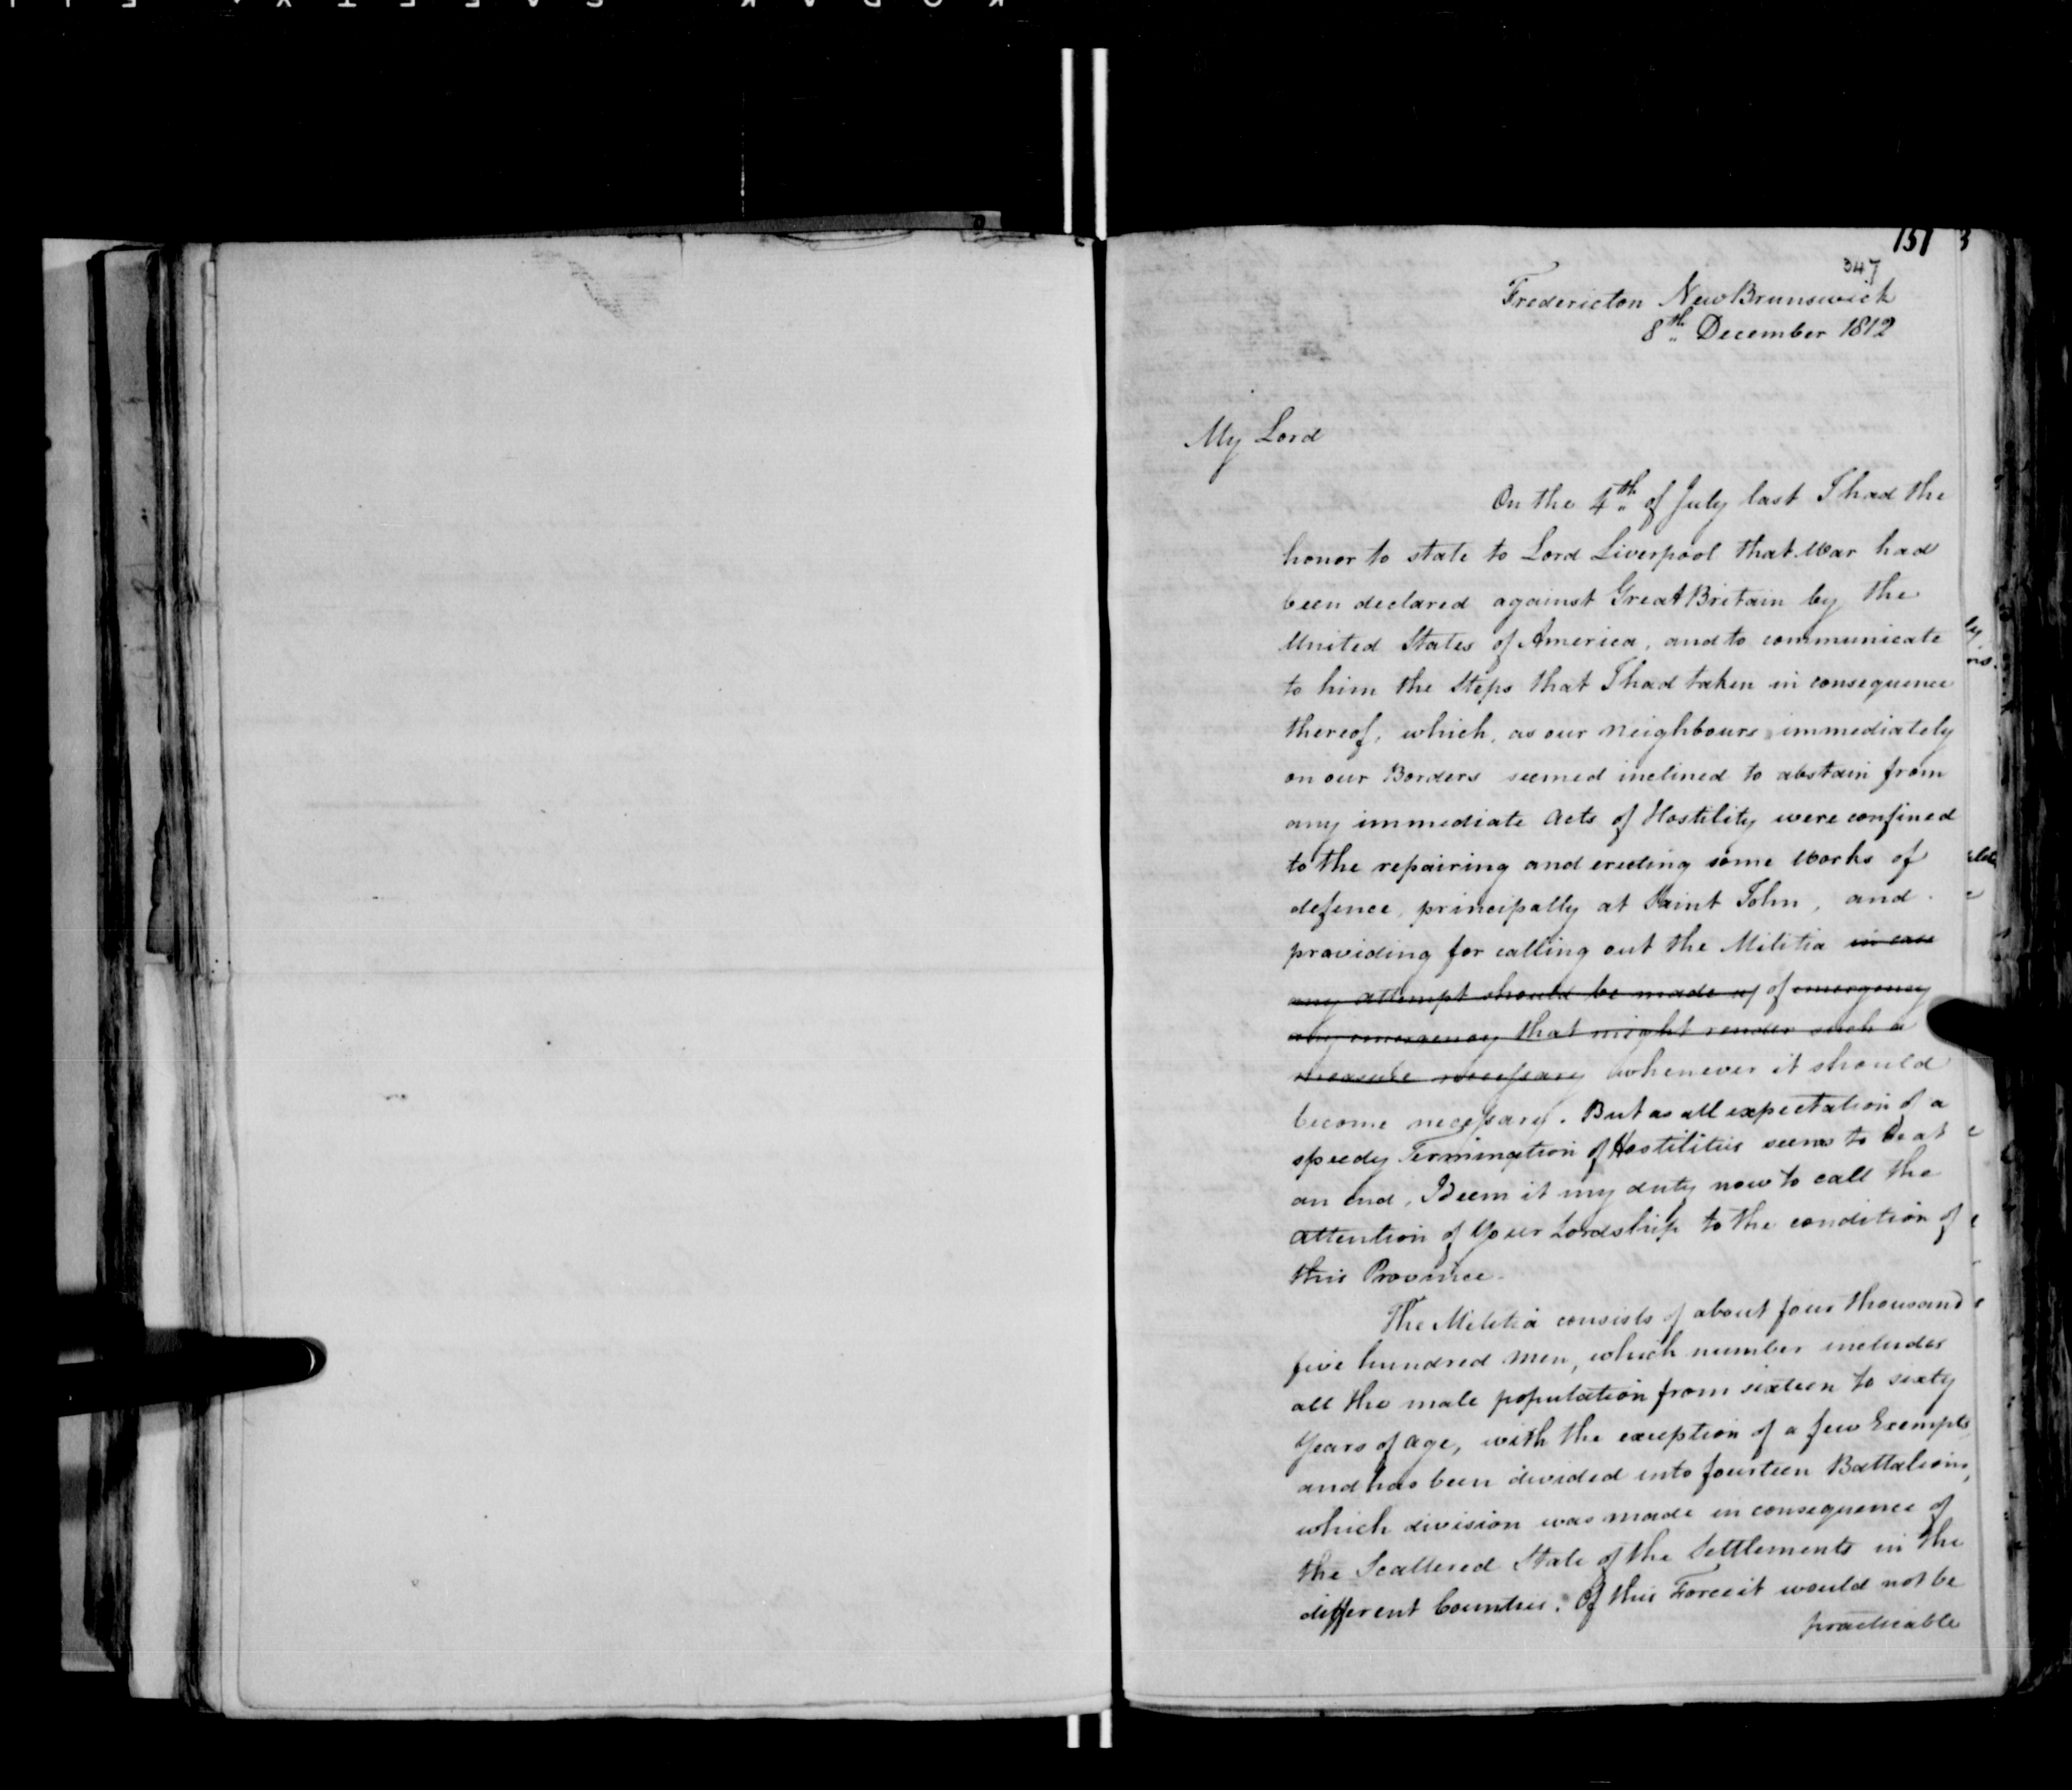 151
347
Fredericton New Brunswick
8th December 1812
My Lord
On the 4th of July last I had the
honor to state to Lord Liverpool that War had
been declared against Great Britain by the
United States of America, and to communicate
to him the Steps that I had taken in consequence
thereof, which, as our Neighbours immediately
on our Borders seemed inclined to abstain from
any immediate Acts of Hostility were confined
to the repairing and erecting some Works of
defence, principally at Saint John, and
providing for calling out the Militia in case
any attempt should be made of emergency
any emergency that might render such a
measure necessary whenever it should
become necessary. But as all expectation of a
speedy Termination of Hostilities seems to be at
an end, I deem it my duty now to call the
attention of Your Lordship to the condition of
this Province.
The Militia consists of about four thousand
five hundred Men, which number includes
all the male population from sixteen to sixty
Years of Age, with the exception of a few Exempts,
and has been divided into fourteen Battalions,
which division was made in consequence of
the Scattered State of the Settlements in the
different Counties. Of this Force it would not be
practicable